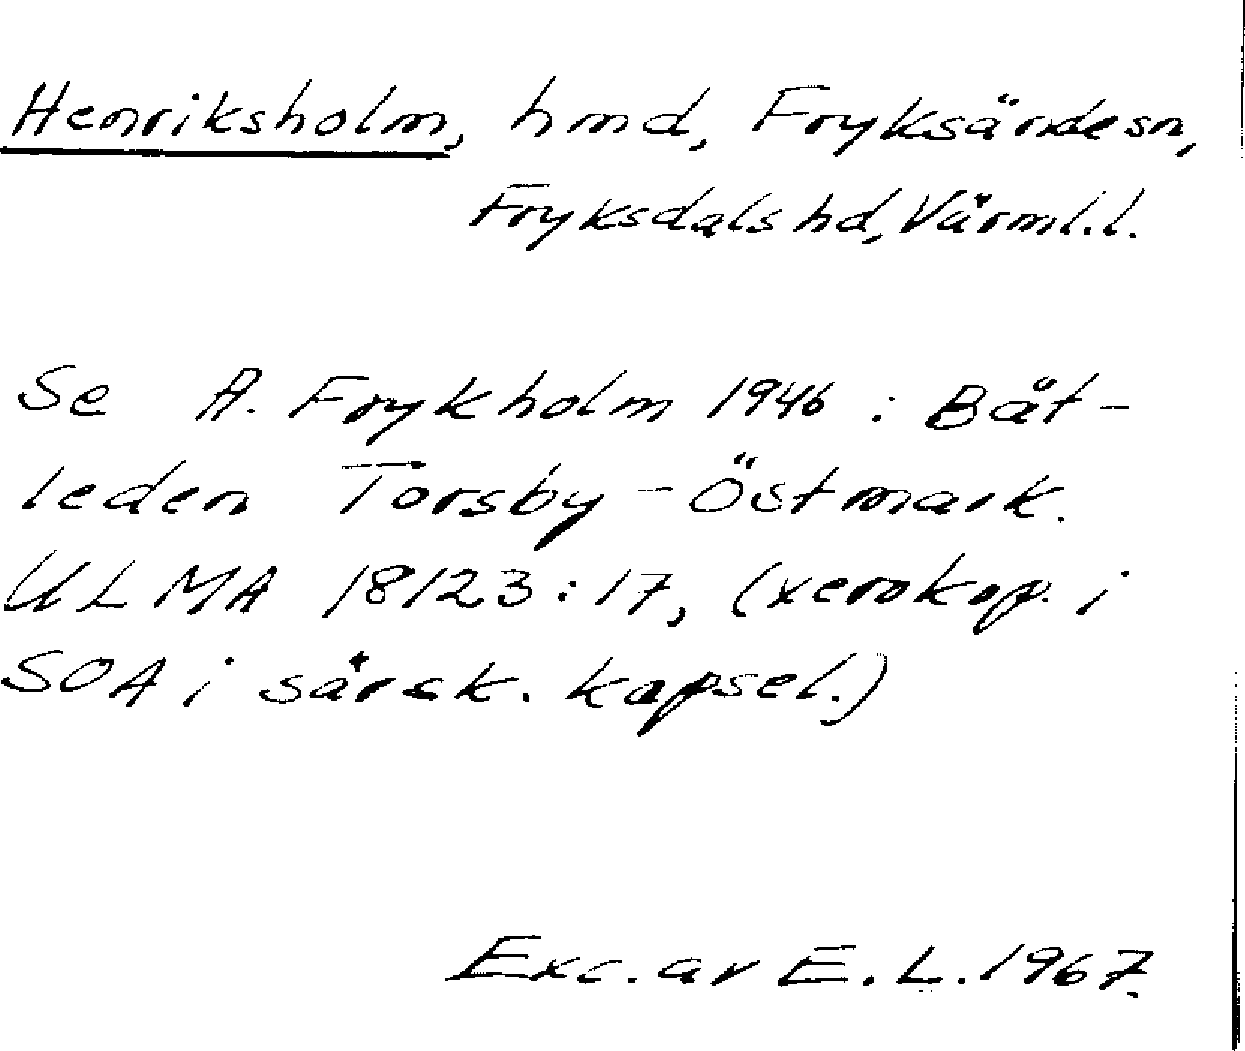 Henriksholm, hmd, Fryksände sn,
Fryksdals hd, Värml.l.
Se A. Frykholm 1946 : Båt-
leden Torsby - Östmark.
ULMA 18123:17, (xerokop. i
SOA i särsk. kapsel.)
Exc. av E. L. 1967.